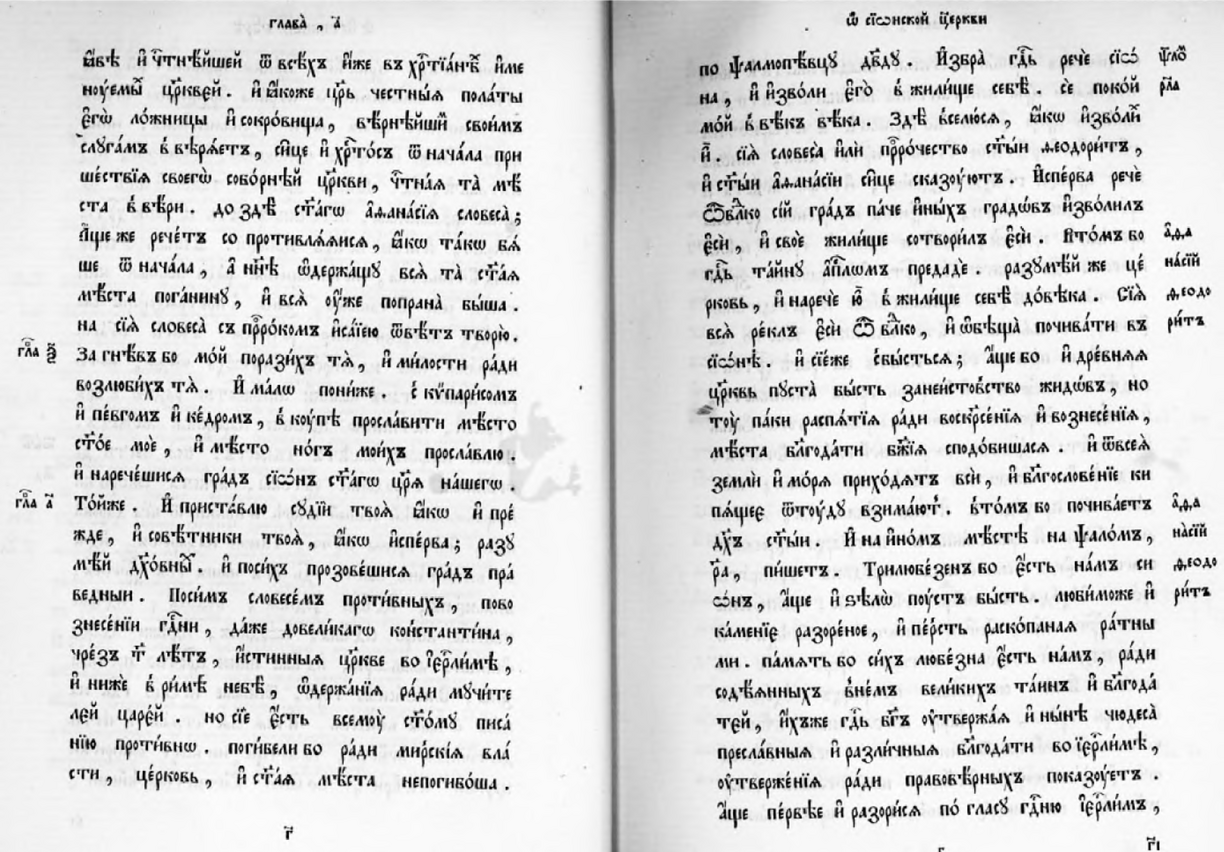 глава̀ , а҃
ꙗ҆́вѣ и҆ чⷭ҇тнѣ́йшей ѿ всѣ́хъ и҆̀же въ хрⷭ҇тїа́нѣⷯ и҆ме
нꙋ́емыⷯ цр҃кве́й . и҆ ꙗ҆́коже цр҃ь честны́ѧ пола́ты
є҆гѡ̀ ло́жницы и҆ сокро́вища , вѣрнѣ́йшиⷨ свои́мъ
слꙋга́мъ в̾вѣрѧ́етъ , си́це и҆ хрⷭ҇то́съ ѿ нача́ла при
ше́ствїѧ своегѡ̀ собо́рнѣй цр҃кви , чⷭ҇тна́ѧ та̀ мѣ
ста̀ в̾вѣ́ри . до здѣ̀ ст҃а́гѡ а҆ѳана́сїѧ словеса̀ ;
а҆́ще же рече́тъ со противлѧ́ѧисѧ , ꙗ҆́кѡ та́кѡ бѧ́
ше ѿ нача́ла , а҆ нн҃ѣ ѡ҆держа́щꙋ всѧ̀ та̀ ст҃а́ѧ
мѣ́ста пога́нинꙋ , и҆ всѧ̀ оу҆́же попрана̀ бы́ша .
на сїѧ̀ словеса̀ съ прⷪ҇ро́комъ и҆са́їею ѿвѣ́тъ творю̀ .
гла҃ ѯ҃
За гнѣ́въ бо мо́й порази́хъ тѧ̀ , и҆ ми́лости ра́ди
возлюби́хъ тѧ̀ . И҆ ма́лѡ пони́же . с̾ кѷпари́сомъ
и҆ пе́вгомъ и҆ ке́дромъ , в̾ кꙋ́пѣ просла́вити мѣ́сто
ст҃о́е моѐ , и҆ мѣ́сто но́гъ мои́хъ просла́влю .
и҆ нарече́шисѧ гра́дъ сїѡ́нъ ст҃а́гѡ цр҃ѧ̀ на́шегѡ .
гла҃ а҃
То́йже . И҆ приста́влю сꙋдїи̑ твоѧ̀ ꙗ҆́кѡ и҆ пре́
жде , и҆ совѣ́тники твоѧ̀ , ꙗ҆́кѡ и҆спе́рва ; разꙋ
мѣ́й дх҃о́вныⷯ . и҆ поси́хъ прозове́шисѧ гра́дъ пра́
ведныи . Поси́мъ словесе́мъ проти́вныхъ , пово
знесе́нїи гдⷭ҇ни , да́же довели́кагѡ ко́нстанти́на ,
чре́зъ т҃ лѣ́тъ , и҆́стинныѧ цр҃кве во і҆ерⷭ҇ли́мѣ ,
и҆ нижѐ в̾ ри́мѣ небѣ̀ , ѡ҆держа́нїѧ ра́ди мꙋчи́те
ле́й царе́й . но сїѐ є҆́сть всемꙋ̀ ст҃о́мꙋ писа́
нїю проти́внѡ . поги́бели бо ра́ди мирскі́ѧ вла́
сти , це́рковь , и҆ ст҃а́ѧ мѣ́ста непогибо́ша .
г҃
Ѿ сїѡ́нской цр҃кви
по ѱалмопѣ́вцꙋ дв҃дꙋ . И҆збра̀ гдⷭ҇ь речѐ сїѡ́
на , и҆ и҆зво́ли є҆го̀ в̾ жили́ще себѣ̀ . сѐ поко́й
мо́й в̾ вѣ́къ вѣ́ка . Здѣ̀ вселю́сѧ , ꙗ҆́кѡ и҆зво́лиⷯ
и҆̀ . сїѧ̀ словеса̀ и҆лѝ прⷪ҇ро́чество ст҃ы́и ѳеодори́тъ ,
и҆ ст҃ы́и а҆ѳана́сїи си́це сказꙋ́ютъ . И҆спе́рва речѐ
Ѽ влⷣко сі́й гра́дъ па́че и҆ны́хъ градѡ́въ и҆зво́лилъ
є҆сѝ , и҆ своѐ жили́ще сотвори́лъ є҆сѝ . Вто́мъ бо
гдⷭ҇ь та́йнꙋ а҆пⷭ҇лѡмъ предадѐ . разꙋмѣ́й же це́
рковь , и҆ наречѐ ю҆̀ в̾ жили́ще себѣ̀ до́вѣка . Сїѧ̀
всѧ̀ ре́клъ є҆сѝ Ѽ влⷣко , и҆ ѡ҆бѣща̀ почива́ти въ
сїѡ́нѣ . и҆ сїе́же сбы́стьсѧ ; а҆́ще бо и҆ дре́внѧѧ
цр҃квь пꙋста̀ бы́сть занеи́стовство жидѡ́въ , но
тꙋ̀ паки распѧ́тїѧ ра́ди воскрⷭ҇е́нїѧ и҆ вознесе́нїѧ ,
мѣ́ста блг҃ода́ти бж҃їѧ сподо́бишасѧ . и҆ ѿвсеѧ̀
землѝ и҆ мо́рѧ прихо́дѧтъ всѝ , и҆ блг҃ослове́нїе ки
пѧ́щее ѿтꙋ́дꙋ взима́юⷮ . в̾то́мъ бо почива́етъ
дх҃ъ ст҃ы́и . И҆ на и҆но́мъ мѣ́стѣ на ѱало́мъ ,
р҃а , пи́шетъ . Трилюбе́зенъ бо є҆́сть на́мъ си
ѡ́нъ , а҆́ще и҆ ѕѣлѡ̀ пꙋ́стъ бы́сть . люби́може и҆
ка́менїе разоре́ное , и҆ пе́рсть раско́паная ра́тны
ми . па́мѧть бо си́хъ любе́зна є҆́сть на́мъ , ра́ди
содѣ́ѧнныхъ в̾не́мъ вели́кихъ та́инъ и҆ блг҃ода́
те́й , и҆́хъже гдⷭ҇ь бг҃ъ оу҆твержа́ѧ и҆ ны́нѣ чюдеса̀
пресла́вныѧ и҆ разли́чныѧ блг҃ода́ти во і҆ерⷭ҇ли́мѣ ,
оу҆тверже́нїѧ ра́ди правовѣ́рныхъ показꙋ́етъ .
а҆́ще пе́рвѣе и҆ разори́сѧ по́ гла́сꙋ гдⷭ҇ню і҆ерⷭ҇ли́мъ ,
ѱало́ⷨ
рл҃а
а҆́ѳа
на́сїй
ѳеодо
ри́тъ
а҆́ѳа
на́сїй
ѳеодо
ри́тъ
г҃і